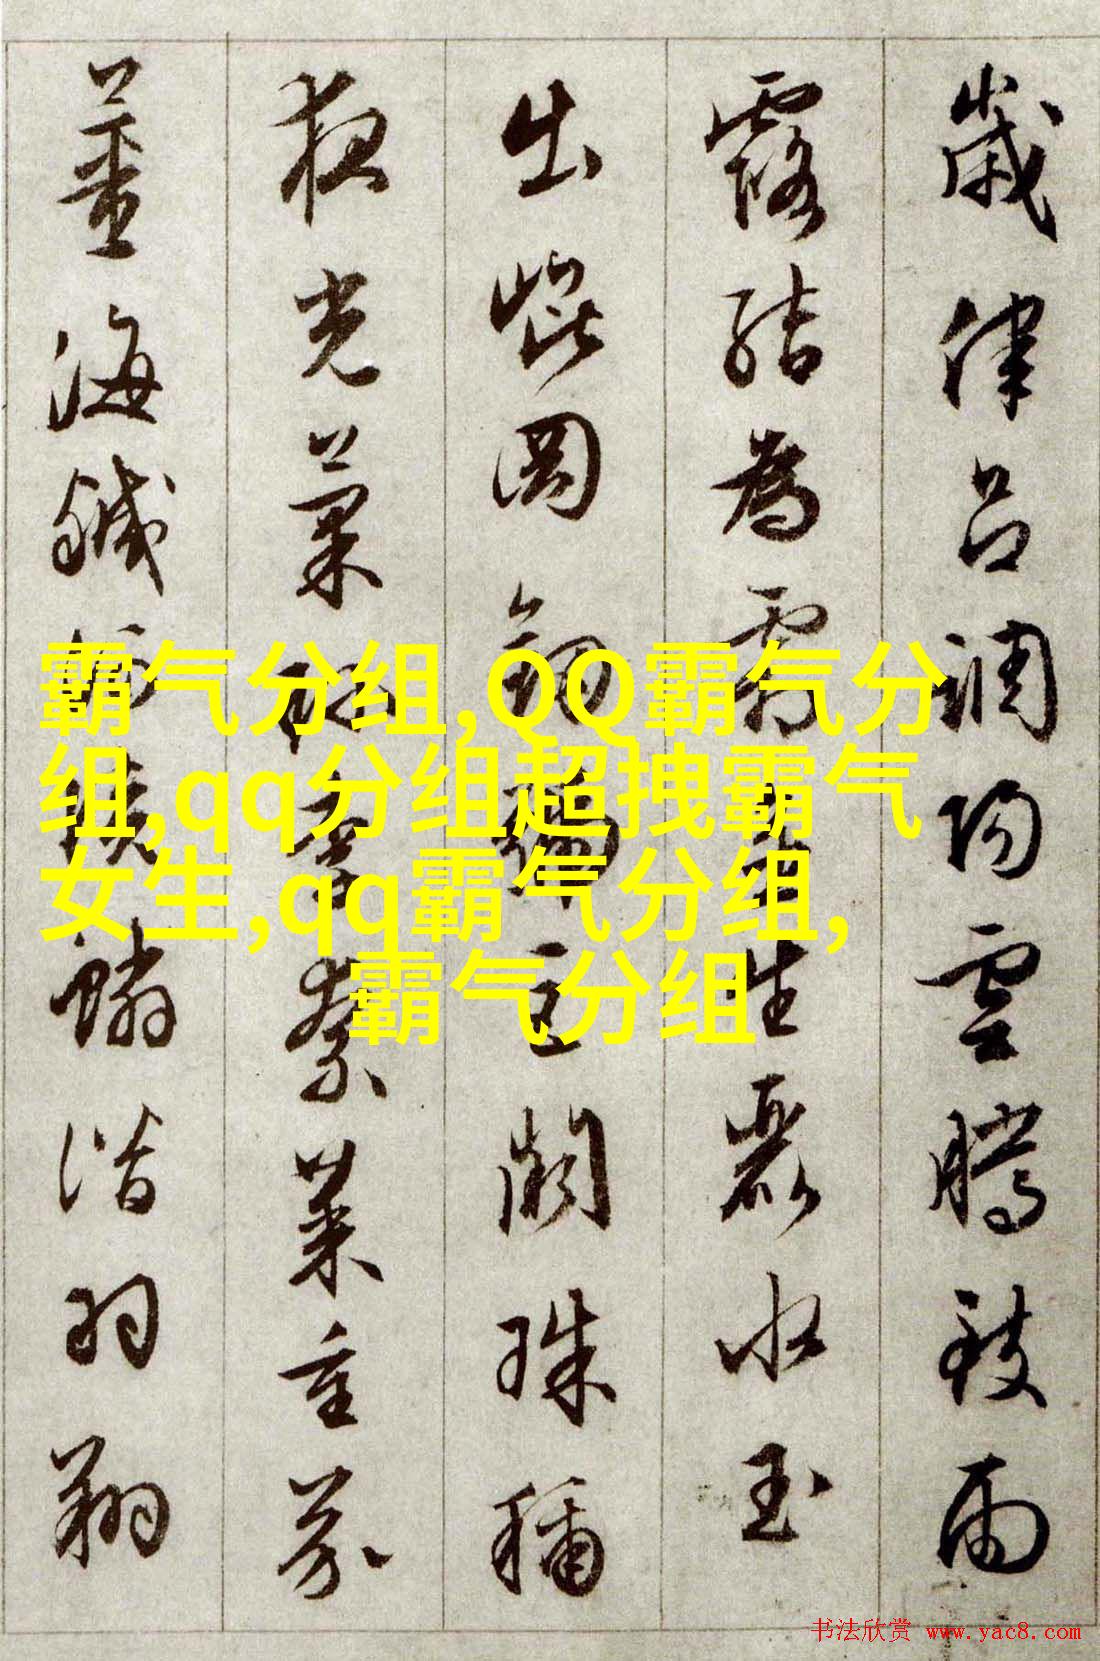 歲律呂調陽雲騰致雨
露結為霜金生麗水玉
出崐岡劍號巨闕珠稱
夜光菓珍李柰菜重芥
薑海鹹河淡鱗潛羽翔
霸气分组,QQ霸气分
组,qq分组超拽霸气
女生,qq霸气分组,
霸气分组
书法欣赏 www.yac8.com